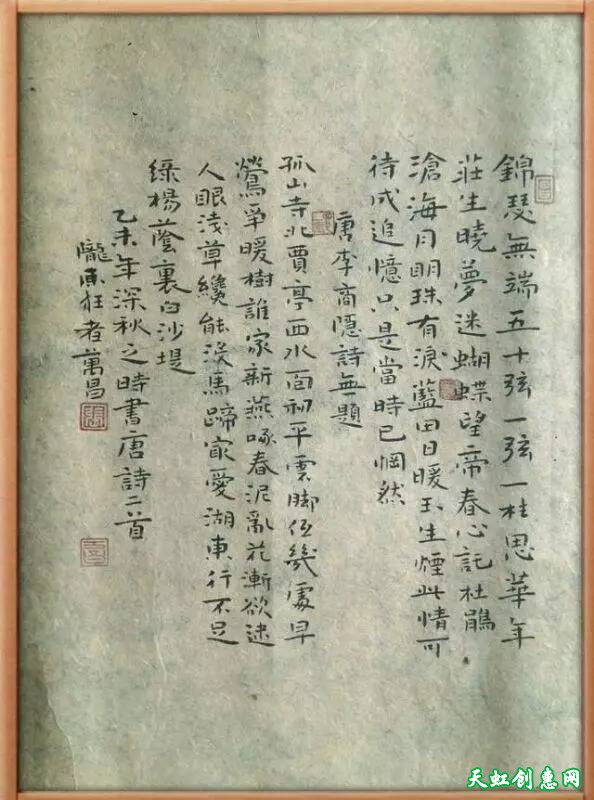 錦瑟無端五十弦一弦一柱思華年
莊生曉夢迷蝴蝶望帝春心託杜鵑
滄海月明珠有淚藍田日暖玉生煙此情可
待成追憶只是當時已惘然
唐李商隱詩無題
孤山寺北賈亭西水面初平雲腳低幾處早
鶯爭暖樹誰家新燕啄春泥亂花漸欲迷
人眼淺草纔能沒馬蹄最愛湖東行不足
綠楊蔭裏白沙堤
乙未年深秋之時書唐詩二首
隴東狂者萬昌
天虹创惠网